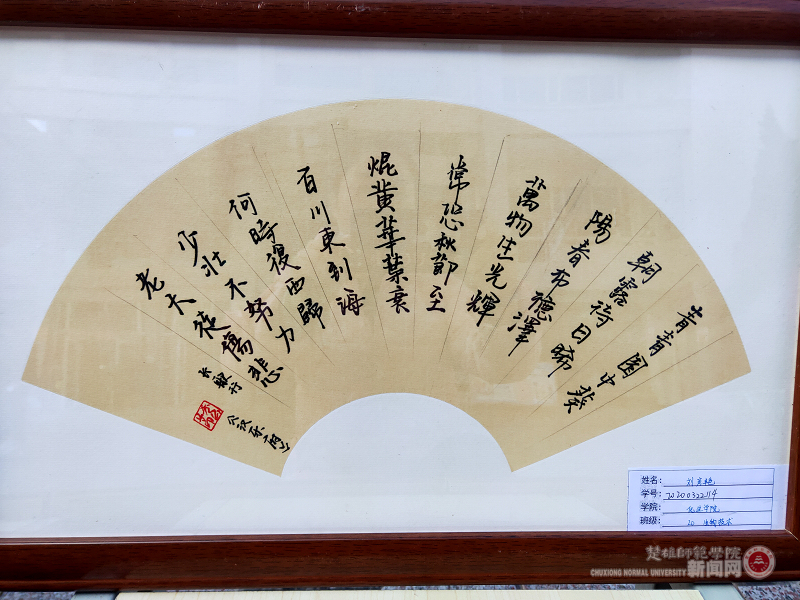 青青園中葵
朝露待日晞
陽春布德澤
萬物生光輝
常恐秋節至
焜黃華葉衰
百川東到海
何時復西歸
少壯不努力
老大徒傷悲
長歌行
姓名:
学号: 20200322114
学院: 化生学院
班级: 20 生物技术
楚雄師範學院
CHUXIONG NORMAL UNIVERSITY
新闻网